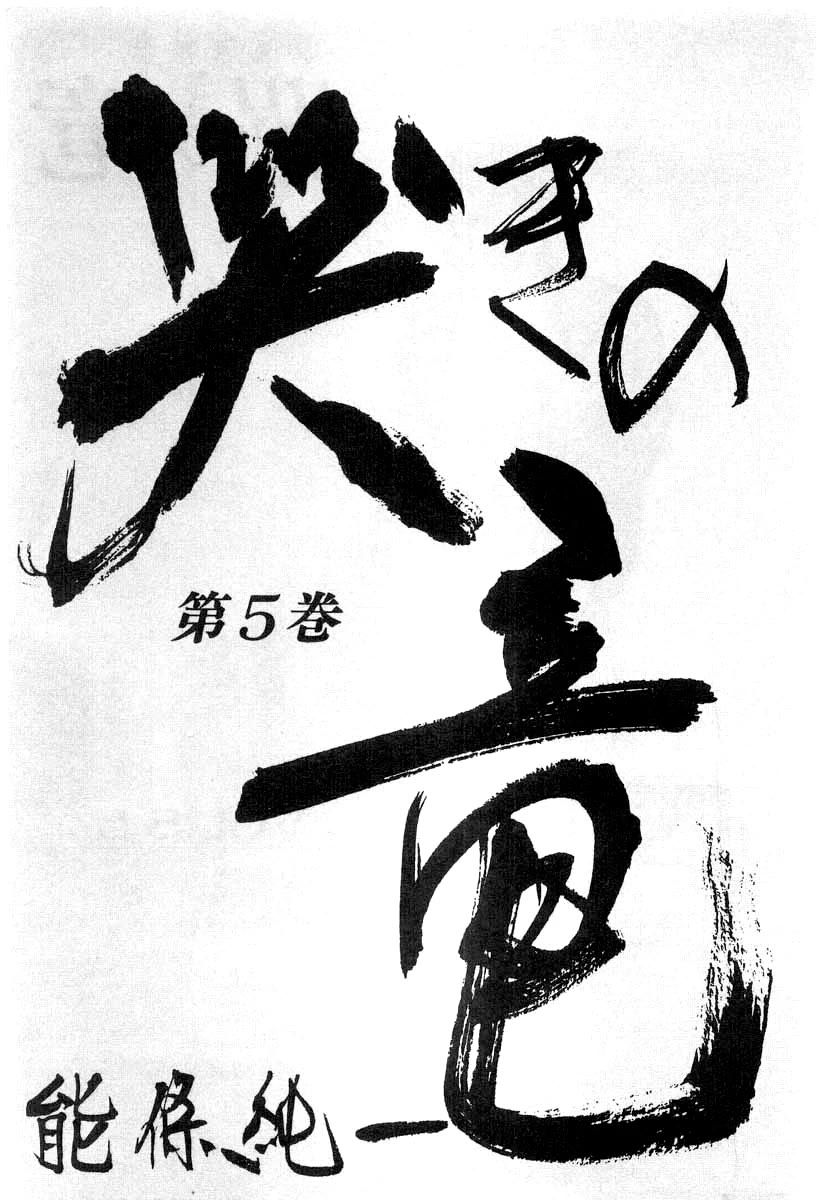 哭きの竜
第5巻
能條純一